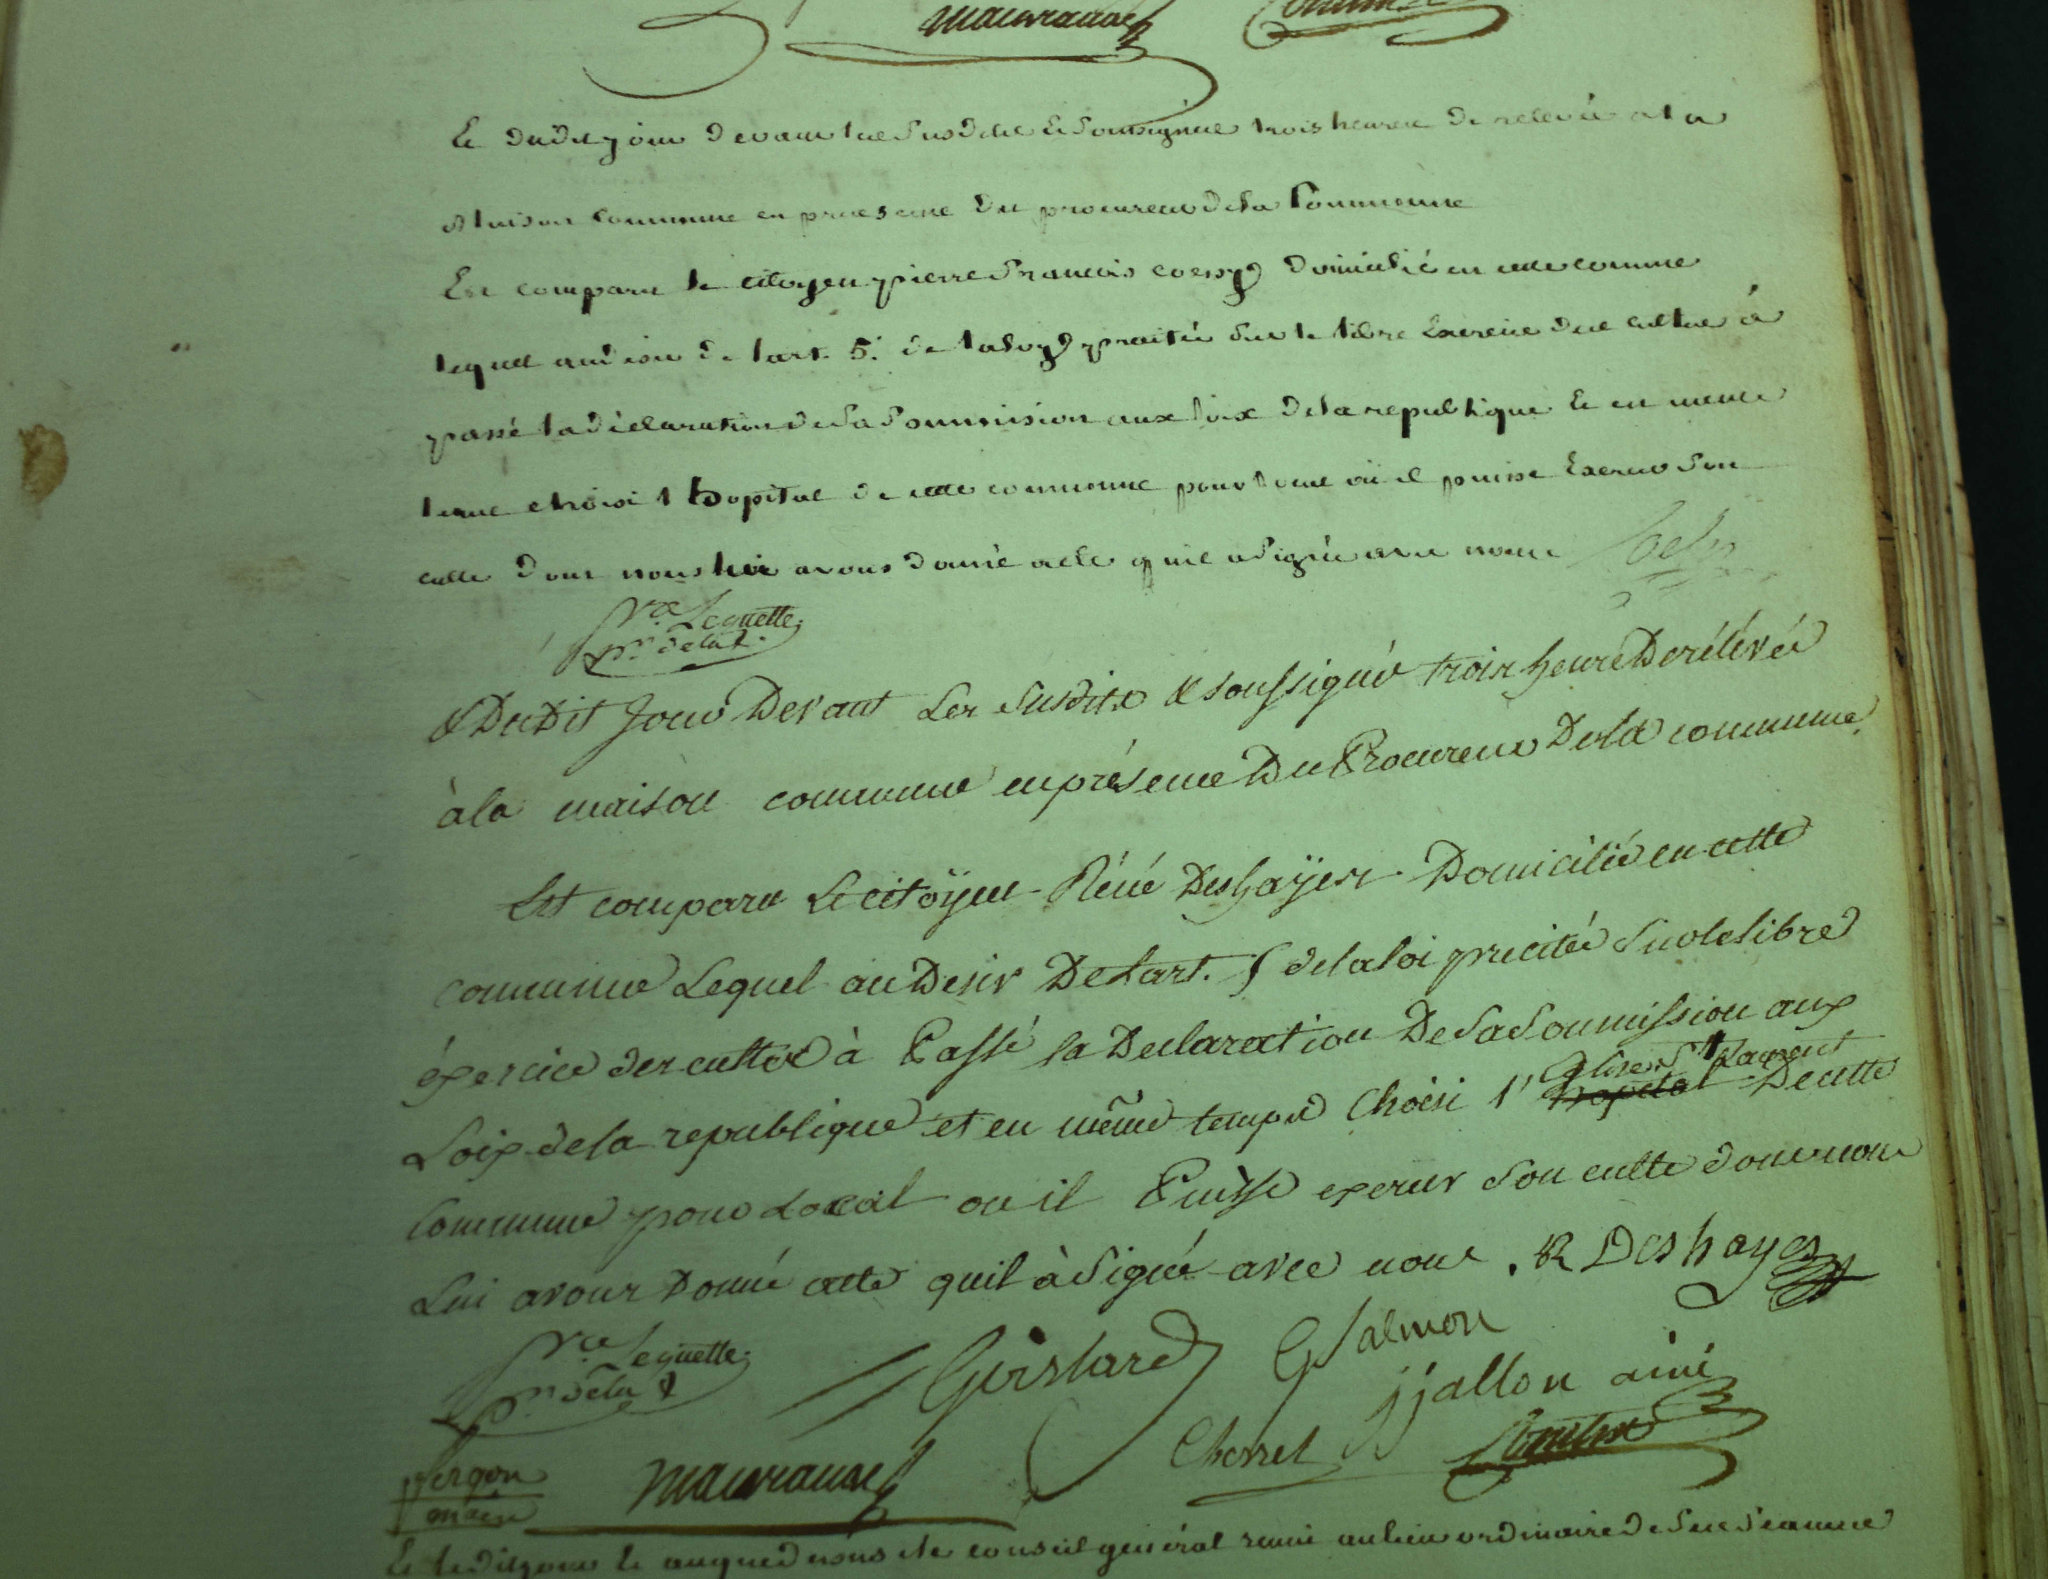 Maurandy
Et dudit jour devant les susdits et soussignés trois heures de relevée a la
Maison Commune en presence du procureur de la Commune
Est comparu le citoyen pierre francois domicilié en cette comune
lequel au desir de l'art. 5. de la loy précitée sur le libre Exercice des cultes à
passé la déclaration de sa soumission aux loix de la republique Et en meme
temps choisi l hopital de cette commune pour local où il puisse Exercer son
culte dont nous lui avons donné acte qu'il a signé avec nous
Leguette
pr. de la
& Dudit Jour Devant Les Susdits & soussigné trois heure De rélévée
à la maison commune en présence Du Procureur De la commune
Est comparu Le citoÿen Réné DeshaŸes Domicilié en cette
commune Lequel au Desir De L'art. 5 de la loi precitée Sur le libre
éxercice des cultes à Passé la Declaration De Sa Soumission aux
Eglise St. Laurent
Loix de la republique et en même temps Choisi l' hopital De cette
Commune pour Local ou il Puisse exercer Son culte dont nous
Lui avons Donné acte qu'il à Signé avec nous . R Deshayes
Leguette
pr. de la
Guislard G Salmon
jjallon ainé
Maurandy
maire
Et le dit jour le conseil général reuni au lieu ordinaire de ses séances